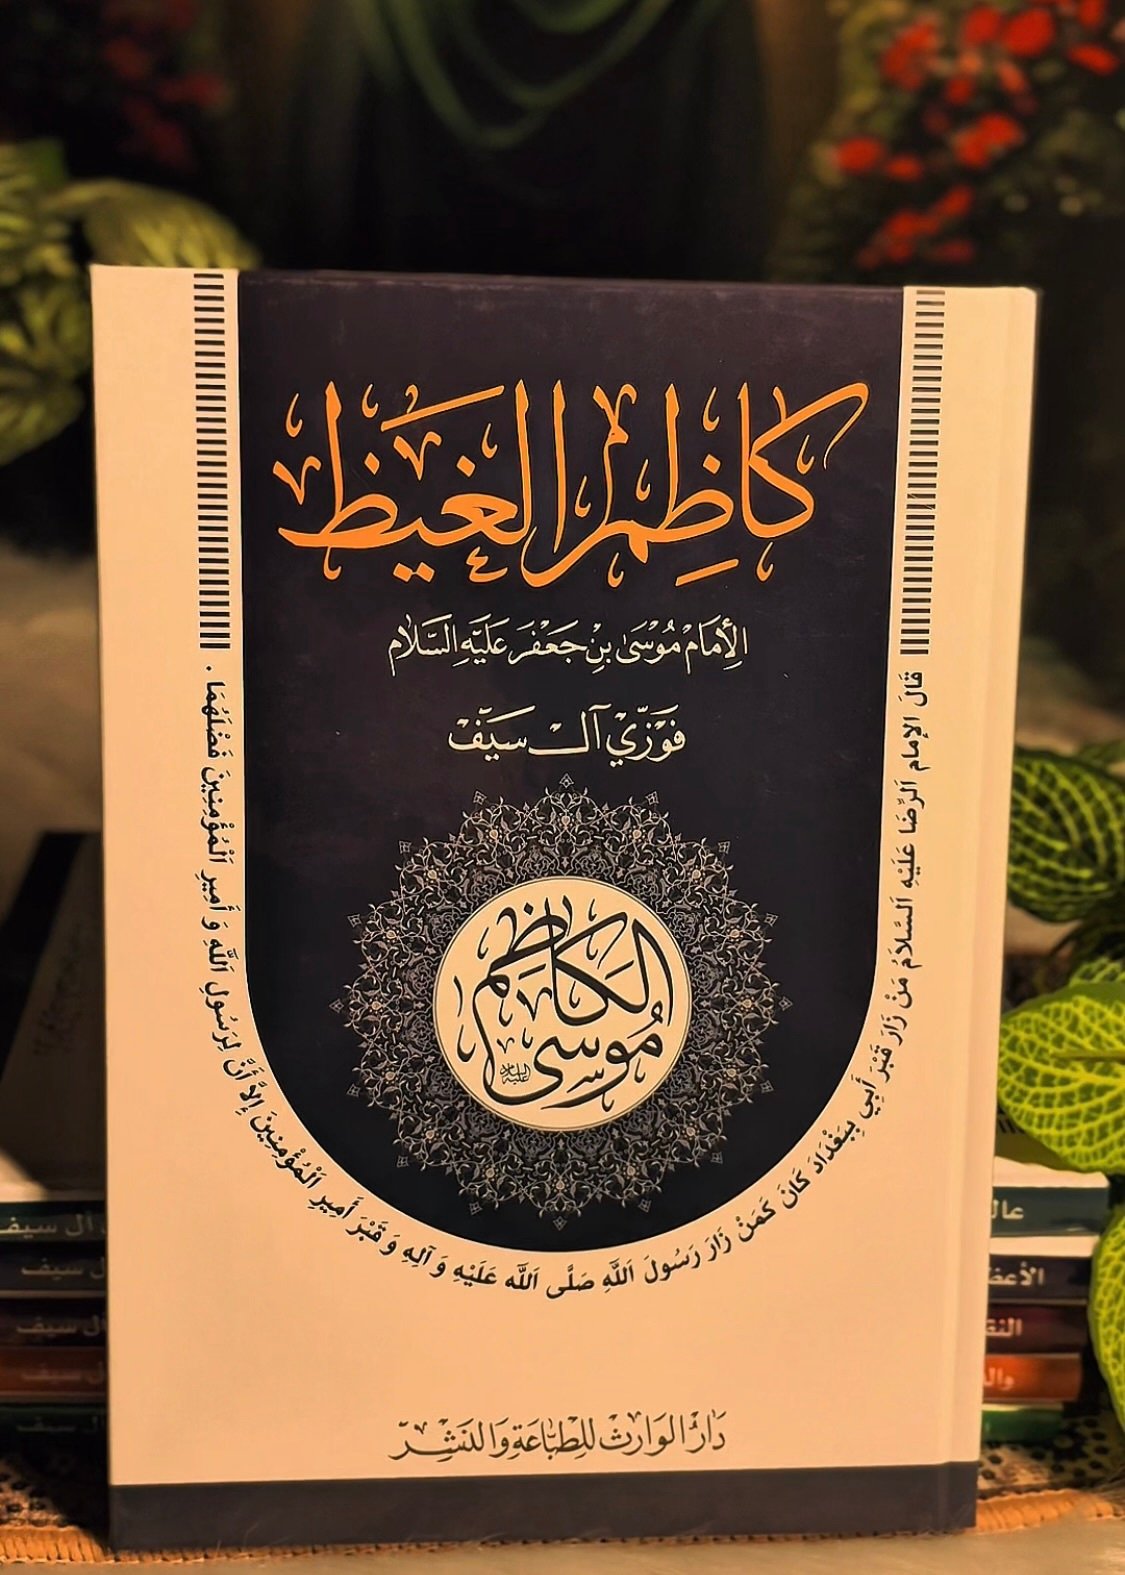 كَاظِمُ الغَيْظ
الإِمَامْ مُوْسَى بِنْ جَعْفَر عَلَيْهِ السَّلَام
فَوْزِّيْ آلْ سَيَفْ
الكَاظِم
مُوسى
عليه السلام
قَالَ الإِمام الرِّضَا عَلَيْهِ السَّلَامُ مَنْ زَارَ قَبْرَ أَبِي بِبَغْدَادَ كَانَ كَمَنْ زَارَ رَسُولَ اللَّهِ صَلَّى اللَّه عَلَيْهِ وَ آلِهِ وَ قَبْرَ أَمِيرِ الْمُؤْمِنِينَ إِلَّا أَنَّ لِرَسُولِ اللَّهِ وَ أَمِيرِ الْمُؤْمِنِينَ فَضْلَهُمَا .
دَارُ الوَارِثْ لِلطِبَّاعَةِ وَالنَشِرّ
ال سيف
ل سيف
ال سيف
ل سيف
ال سيف
عال
الأعظ
النق
وال